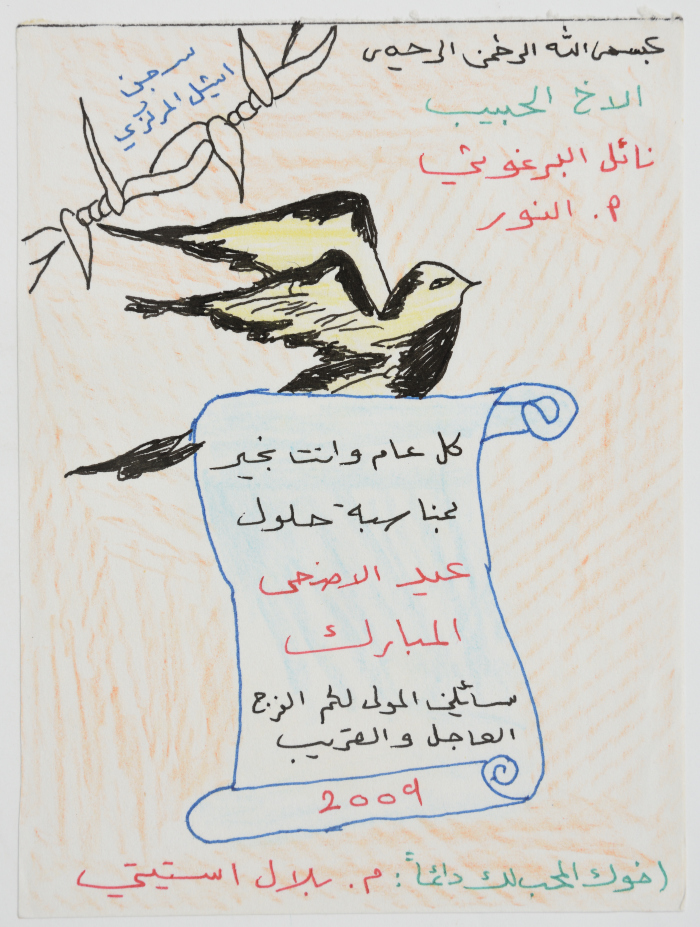 بسم الله الرحمن الرحيم
الاخ الحبيب
نائل البرغوثي
م. النور
سجن
ايشل المركزي
كل عام وانت بخير
بمناسبة حلول
عيد الاضحى
المبارك
سائلين المولى لكم الفرج
العاجل والقريب
2009
اخوك المحب لك دائماً: م. بلال استيتي